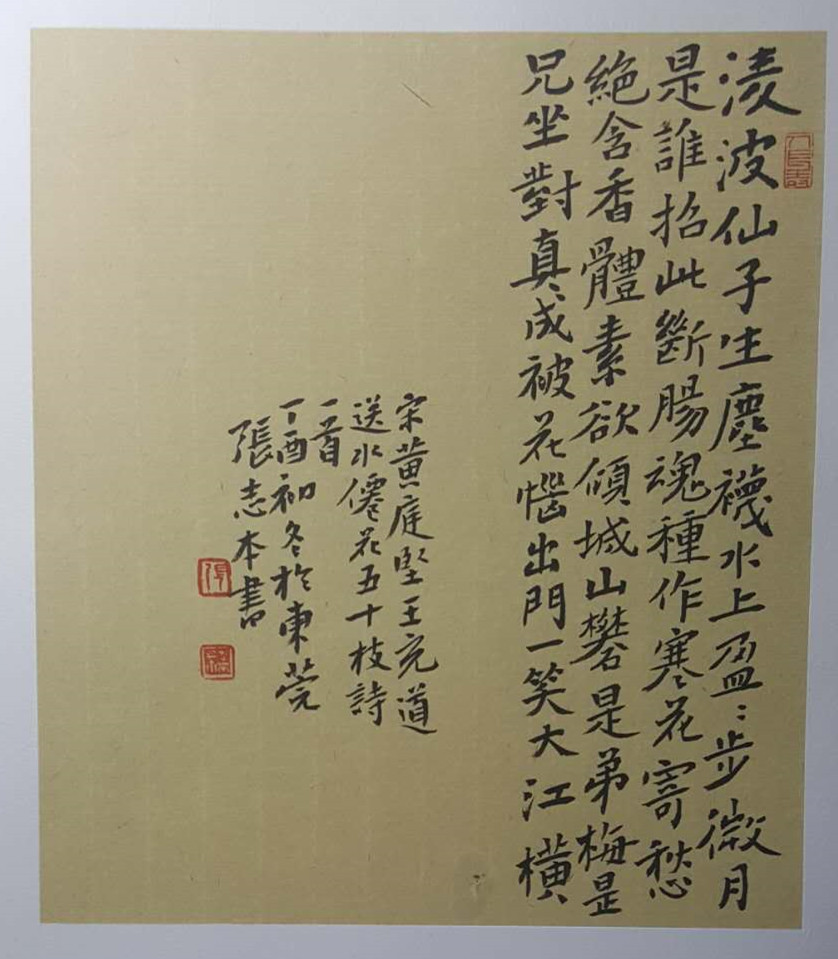 淩波仙子生塵襪水上盈〻步微月
是誰招此斷腸魂種作寒花寄愁
絕含香體素欲傾城山礬是弟梅是
兄坐對真成被花惱出門一笑大江橫
宋黄庭堅王充道
送水僊花五十枝詩
一首
丁酉初冬於東莞
張志本書
張